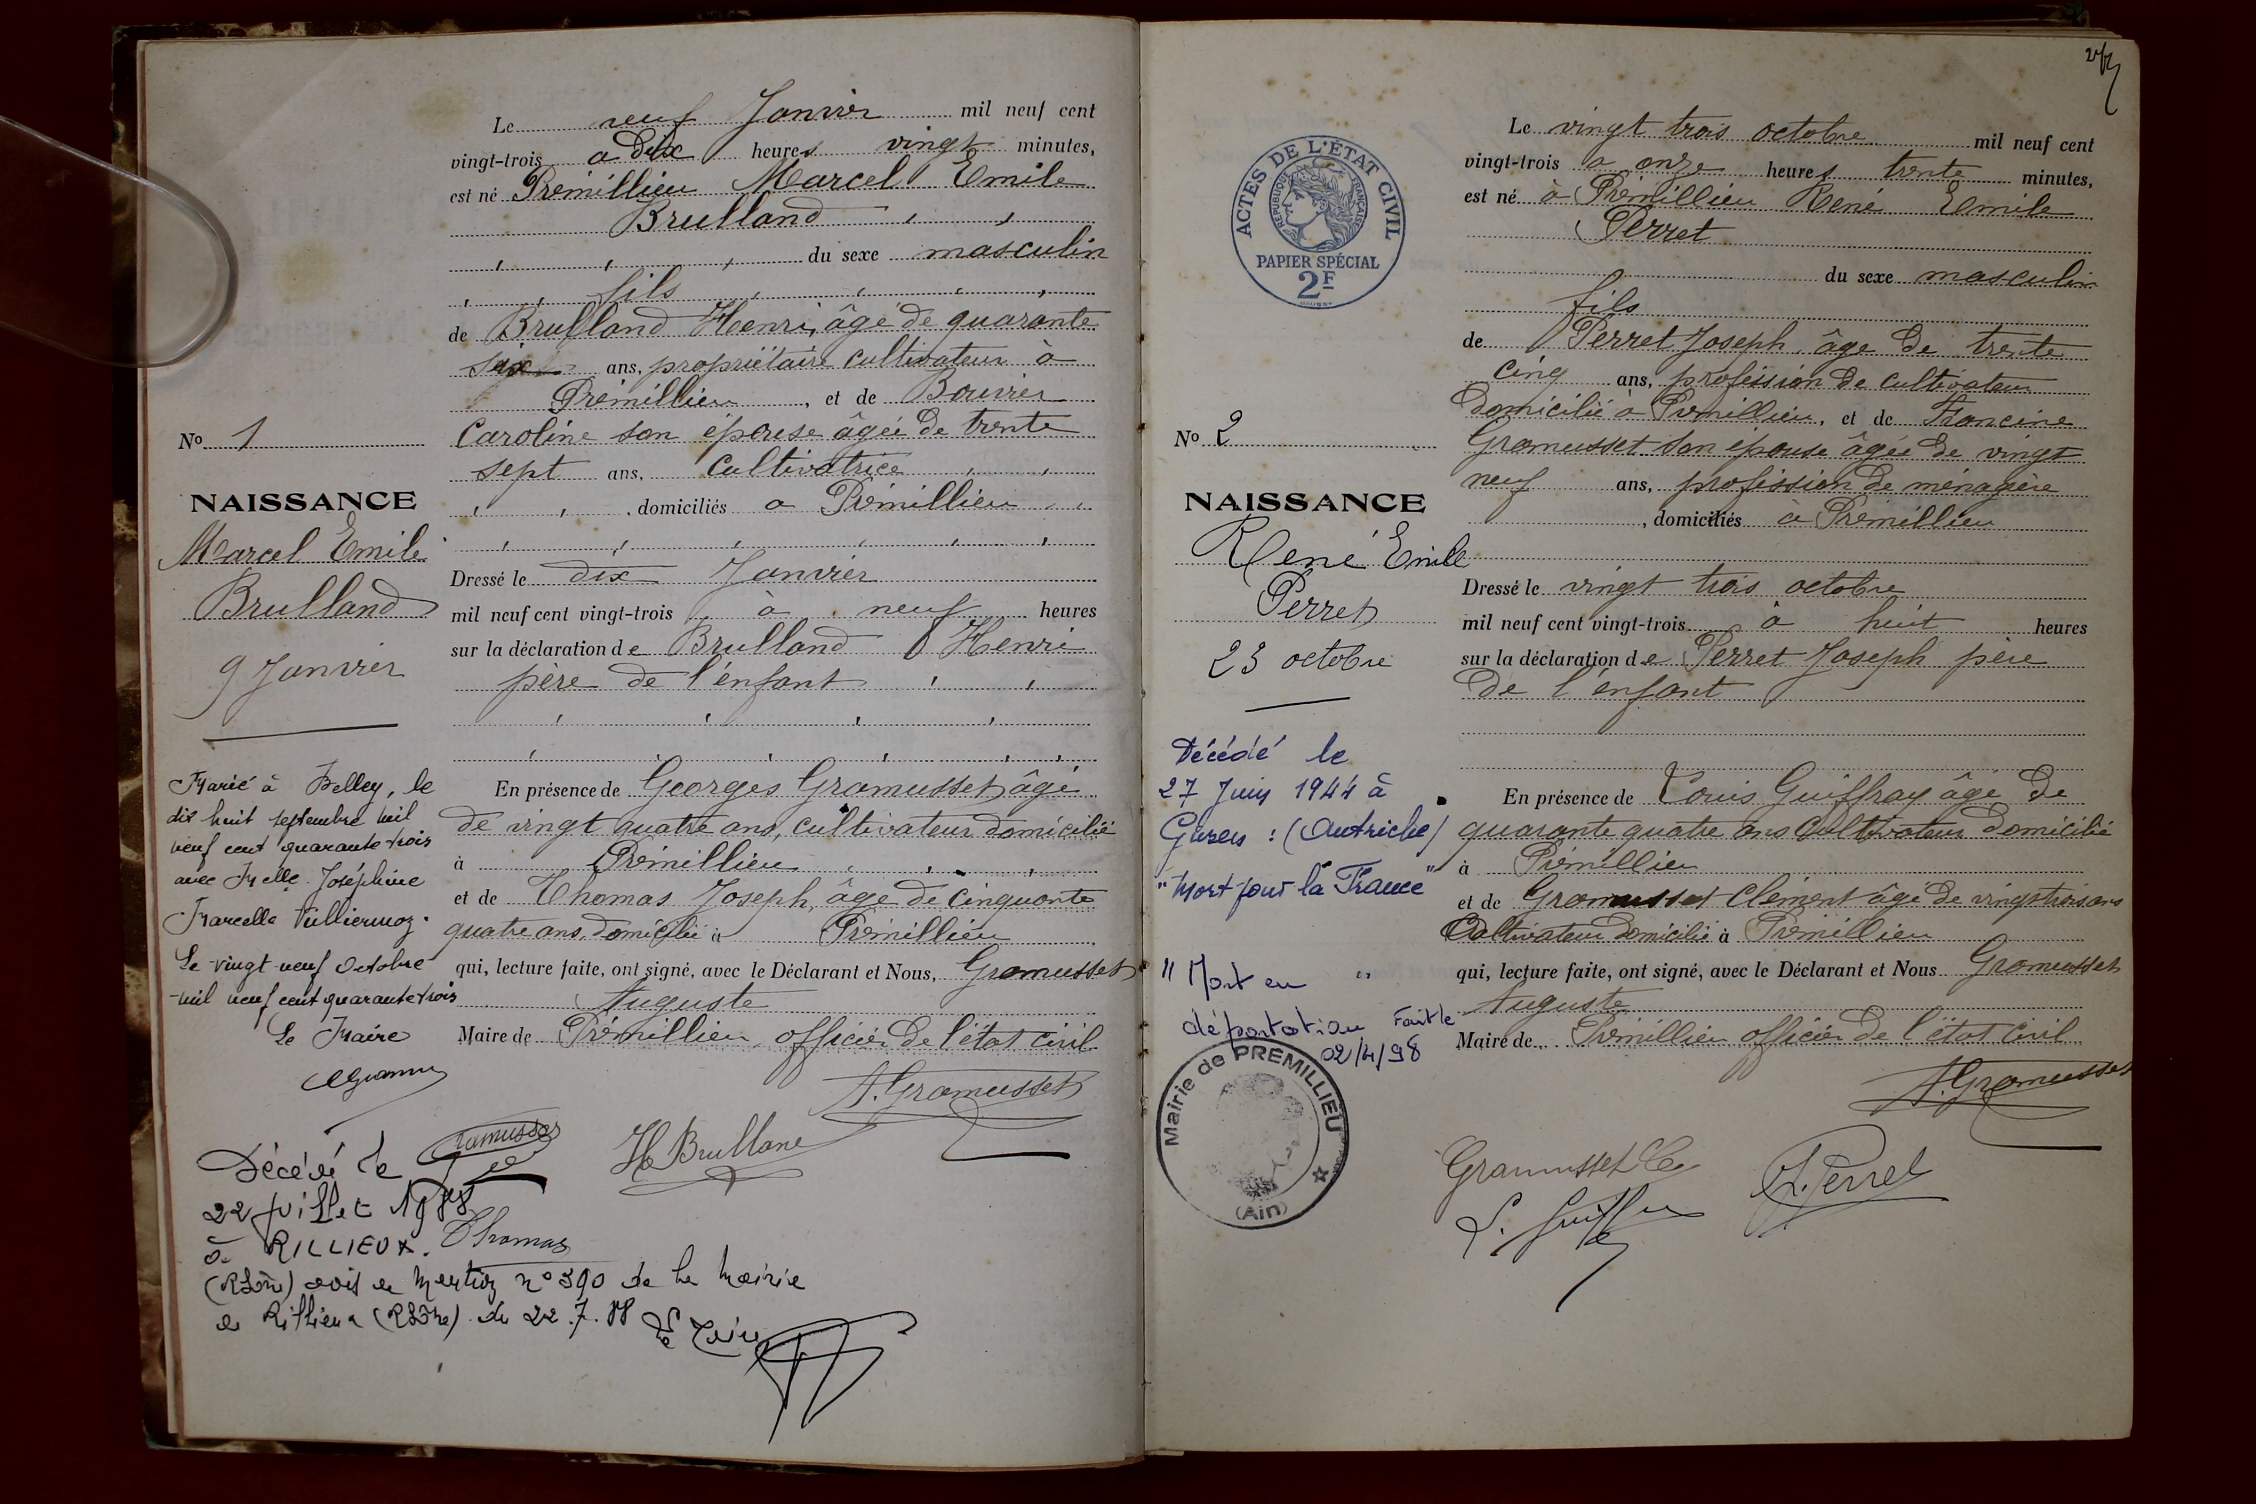 Le neuf Janvier mil neuf cent
vingt-trois a dix heures vingt minutes,
est né Prémillieu Marcel Emile
Brulland
du sexe masculin
fils
de Brulland Henri, âgé de quarante
six ans, propriétaire cultivateur à
Prémillieu, et de Bouvier
Caroline son épouse âgée de trente
sept ans, Cultivatrice
, domiciliés a Prémillieu
Dressé le dix Janvier
mil neuf cent vingt-trois à neuf heures
sur la déclaration de Brulland Henri
père de l'enfant
En présence de Georges Gramusset âgé
de vingt quatre ans, cultivateur domicilié
à Prémillieu
et de Thomas Joseph, âgé de cinquante
quatre ans, domicilié à Prémillieu
qui, lecture faite, ont signé, avec le Déclarant et Nous, Gramusset
Auguste
Maire de Prémillieu officier de l'état civil
A. Gramusset
Gramusset
H. Brulland
Thomas
No 1
NAISSANCE
Marcel Emile
Brulland
9 Janvier
Marié à Belley, le
dix huit septembre mil
neuf cent quarante trois
avec Melle Joséphine
Marcelle Vulliermoz.
Le vingt-neuf Octobre
mil neuf cent quarante trois
Le Maire
Décédé le
22 juillet 1988
à RILLIEUX.
(Rhône) avis de mention n° 390 de la Mairie
de Rillieux (Rhône) du 22.7.88 Le Maire
ACTES DE L'ÉTAT CIVIL
RÉPUBLIQUE FRANÇAISE
PAPIER SPÉCIAL
2F
No 2
NAISSANCE
René Emile
Perret
23 octobre
Décédé le
27 Juin 1944 à
Gusen : (Autriche)
"Mort pour la France"
"Mort en "
déportation Fait le
02/4/98
Mairie de PREMILLIEU
(Ain)
Le vingt trois octobre mil neuf cent
vingt-trois a onze heures trente minutes,
est né à Prémillieu René Emile
Perret
du sexe masculin
fils
de Perret Joseph âgé de trente
cinq ans, profession de cultivateur
domicilié à Prémillieu, et de Francine
Gramusset son épouse âgée de vingt
neuf ans, profession de ménagère
, domiciliés à Prémillieu
Dressé le vingt trois octobre
mil neuf cent vingt-trois à huit heures
sur la déclaration de Perret Joseph père
de l'enfant
En présence de Louis Guiffray âgé de
quarante quatre ans Cultivateur domicilié
à Prémillieu
et de Gramusset Clément âgé de vingt trois ans
Cultivateur domicilié à Prémillieu
qui, lecture faite, ont signé, avec le Déclarant et Nous Gramusset
Auguste
Maire de Prémillieu officier de l'état civil
A. Gramusset
Gramusset
J. Perret